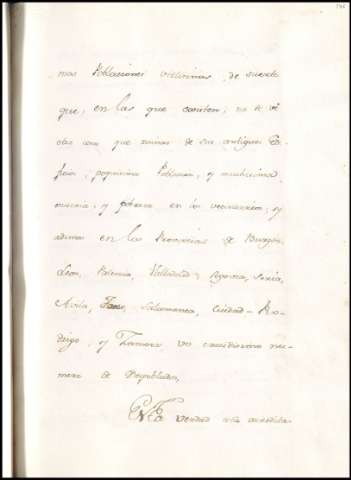 mas Poblaciones vecinas, de suerte
que, en las que existen, no se ve
otra cosa que ruinas de sus antiguos Edi
ficios, poquisima Poblacion, y muchisima
miseria, y pobreza en los vecindarios; y
ademas en las Provincias de Burgos,
Leon, Palencia, Valladolid, Segovia, Soria,
Avila, Toro, Salamanca, Ciudad-Ro-
drigo, y Zamora un considerable nu-
mero de Despoblados,
Esta verdad esta acredita-